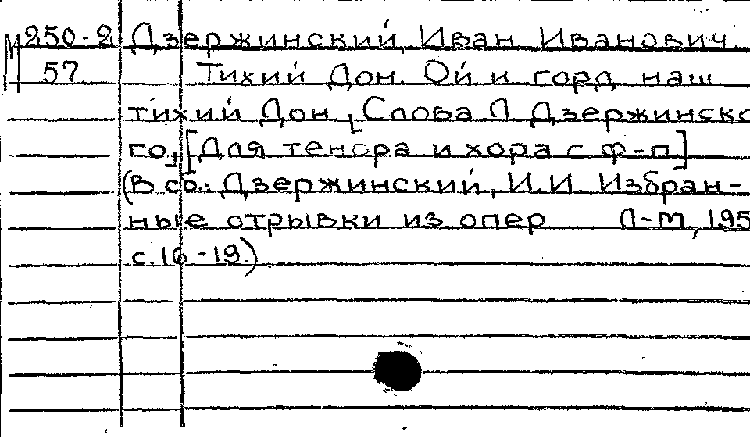 М250-2 Дзержинский, Иван Иванович.
57 Тихий Дон. Ой и горд наш
тихий Дон. [Слова Л. Дзержинско
го.] [Для тенора и хора с ф-п]
(В сб.: Дзержинский, И.И. Избран-
ные отрывки из опер Л-М, 195
с. 16-19.)